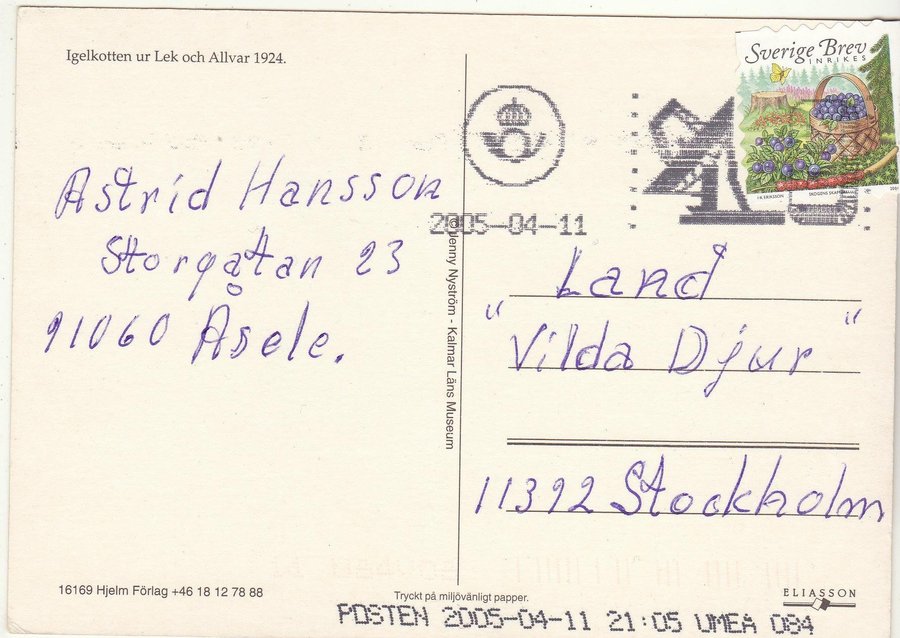 Igelkotten ur Lek och Allvar 1924.
Astrid Hansson
Storgatan 23
91060 Åsele.
© Jenny Nyström - Kalmar Läns Museum
Sverige Brev
INRIKES
SKOGENS SKAFFERI
2005-04-11
Land
"Vilda Djur"
11392 Stockholm
16169 Hjelm Förlag +46 18 12 78 88
Tryckt på miljövänligt papper.
ELIASSON
POSTEN 2005-04-11 21:05 UMEA 084